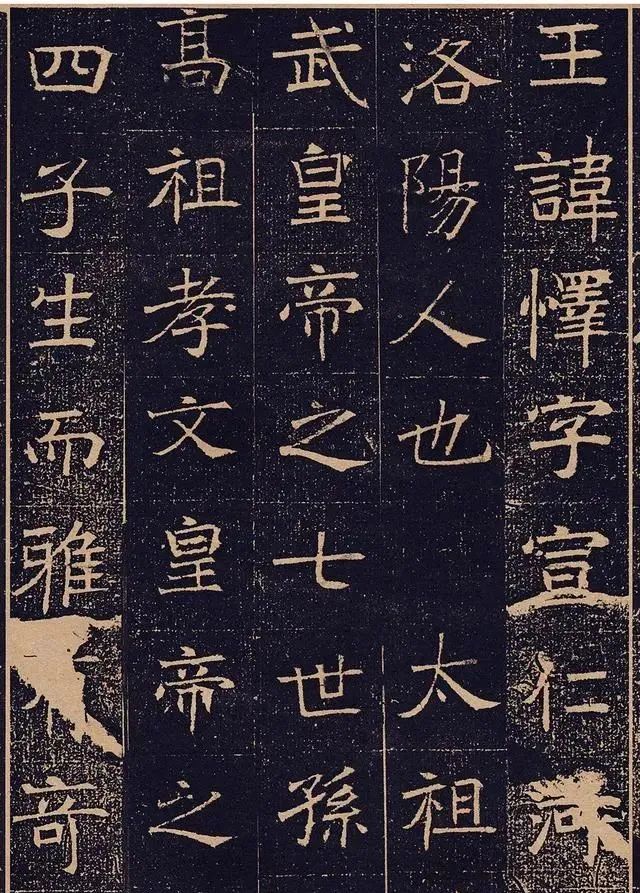 王諱懌字宣仁河
洛陽人也 太祖
武皇帝之七世孫
髙祖孝文皇帝之
四子生而雅竒